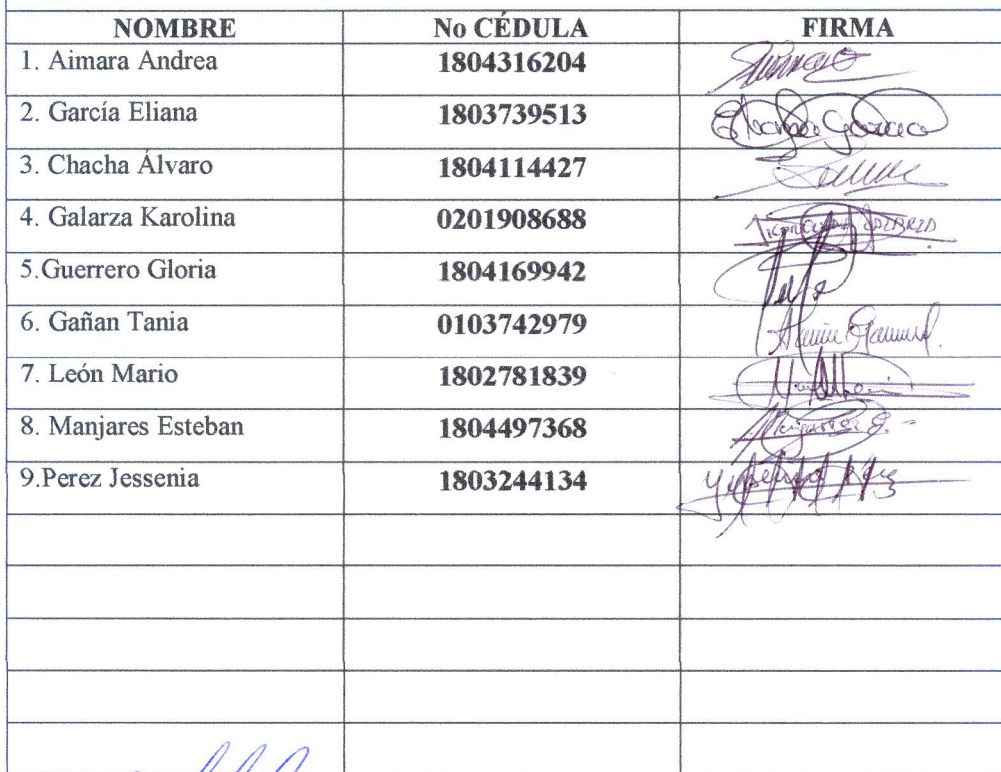 NOMBRE No CÉDULA FIRMA
1. Aimara Andrea 1804316204
2. García Eliana 1803739513
3. Chacha Álvaro 1804114427
4. Galarza Karolina 0201908688
5.Guerrero Gloria 1804169942
6. Gañan Tania 0103742979
7. León Mario 1802781839
8. Manjares Esteban 1804497368
9.Perez Jessenia 1803244134